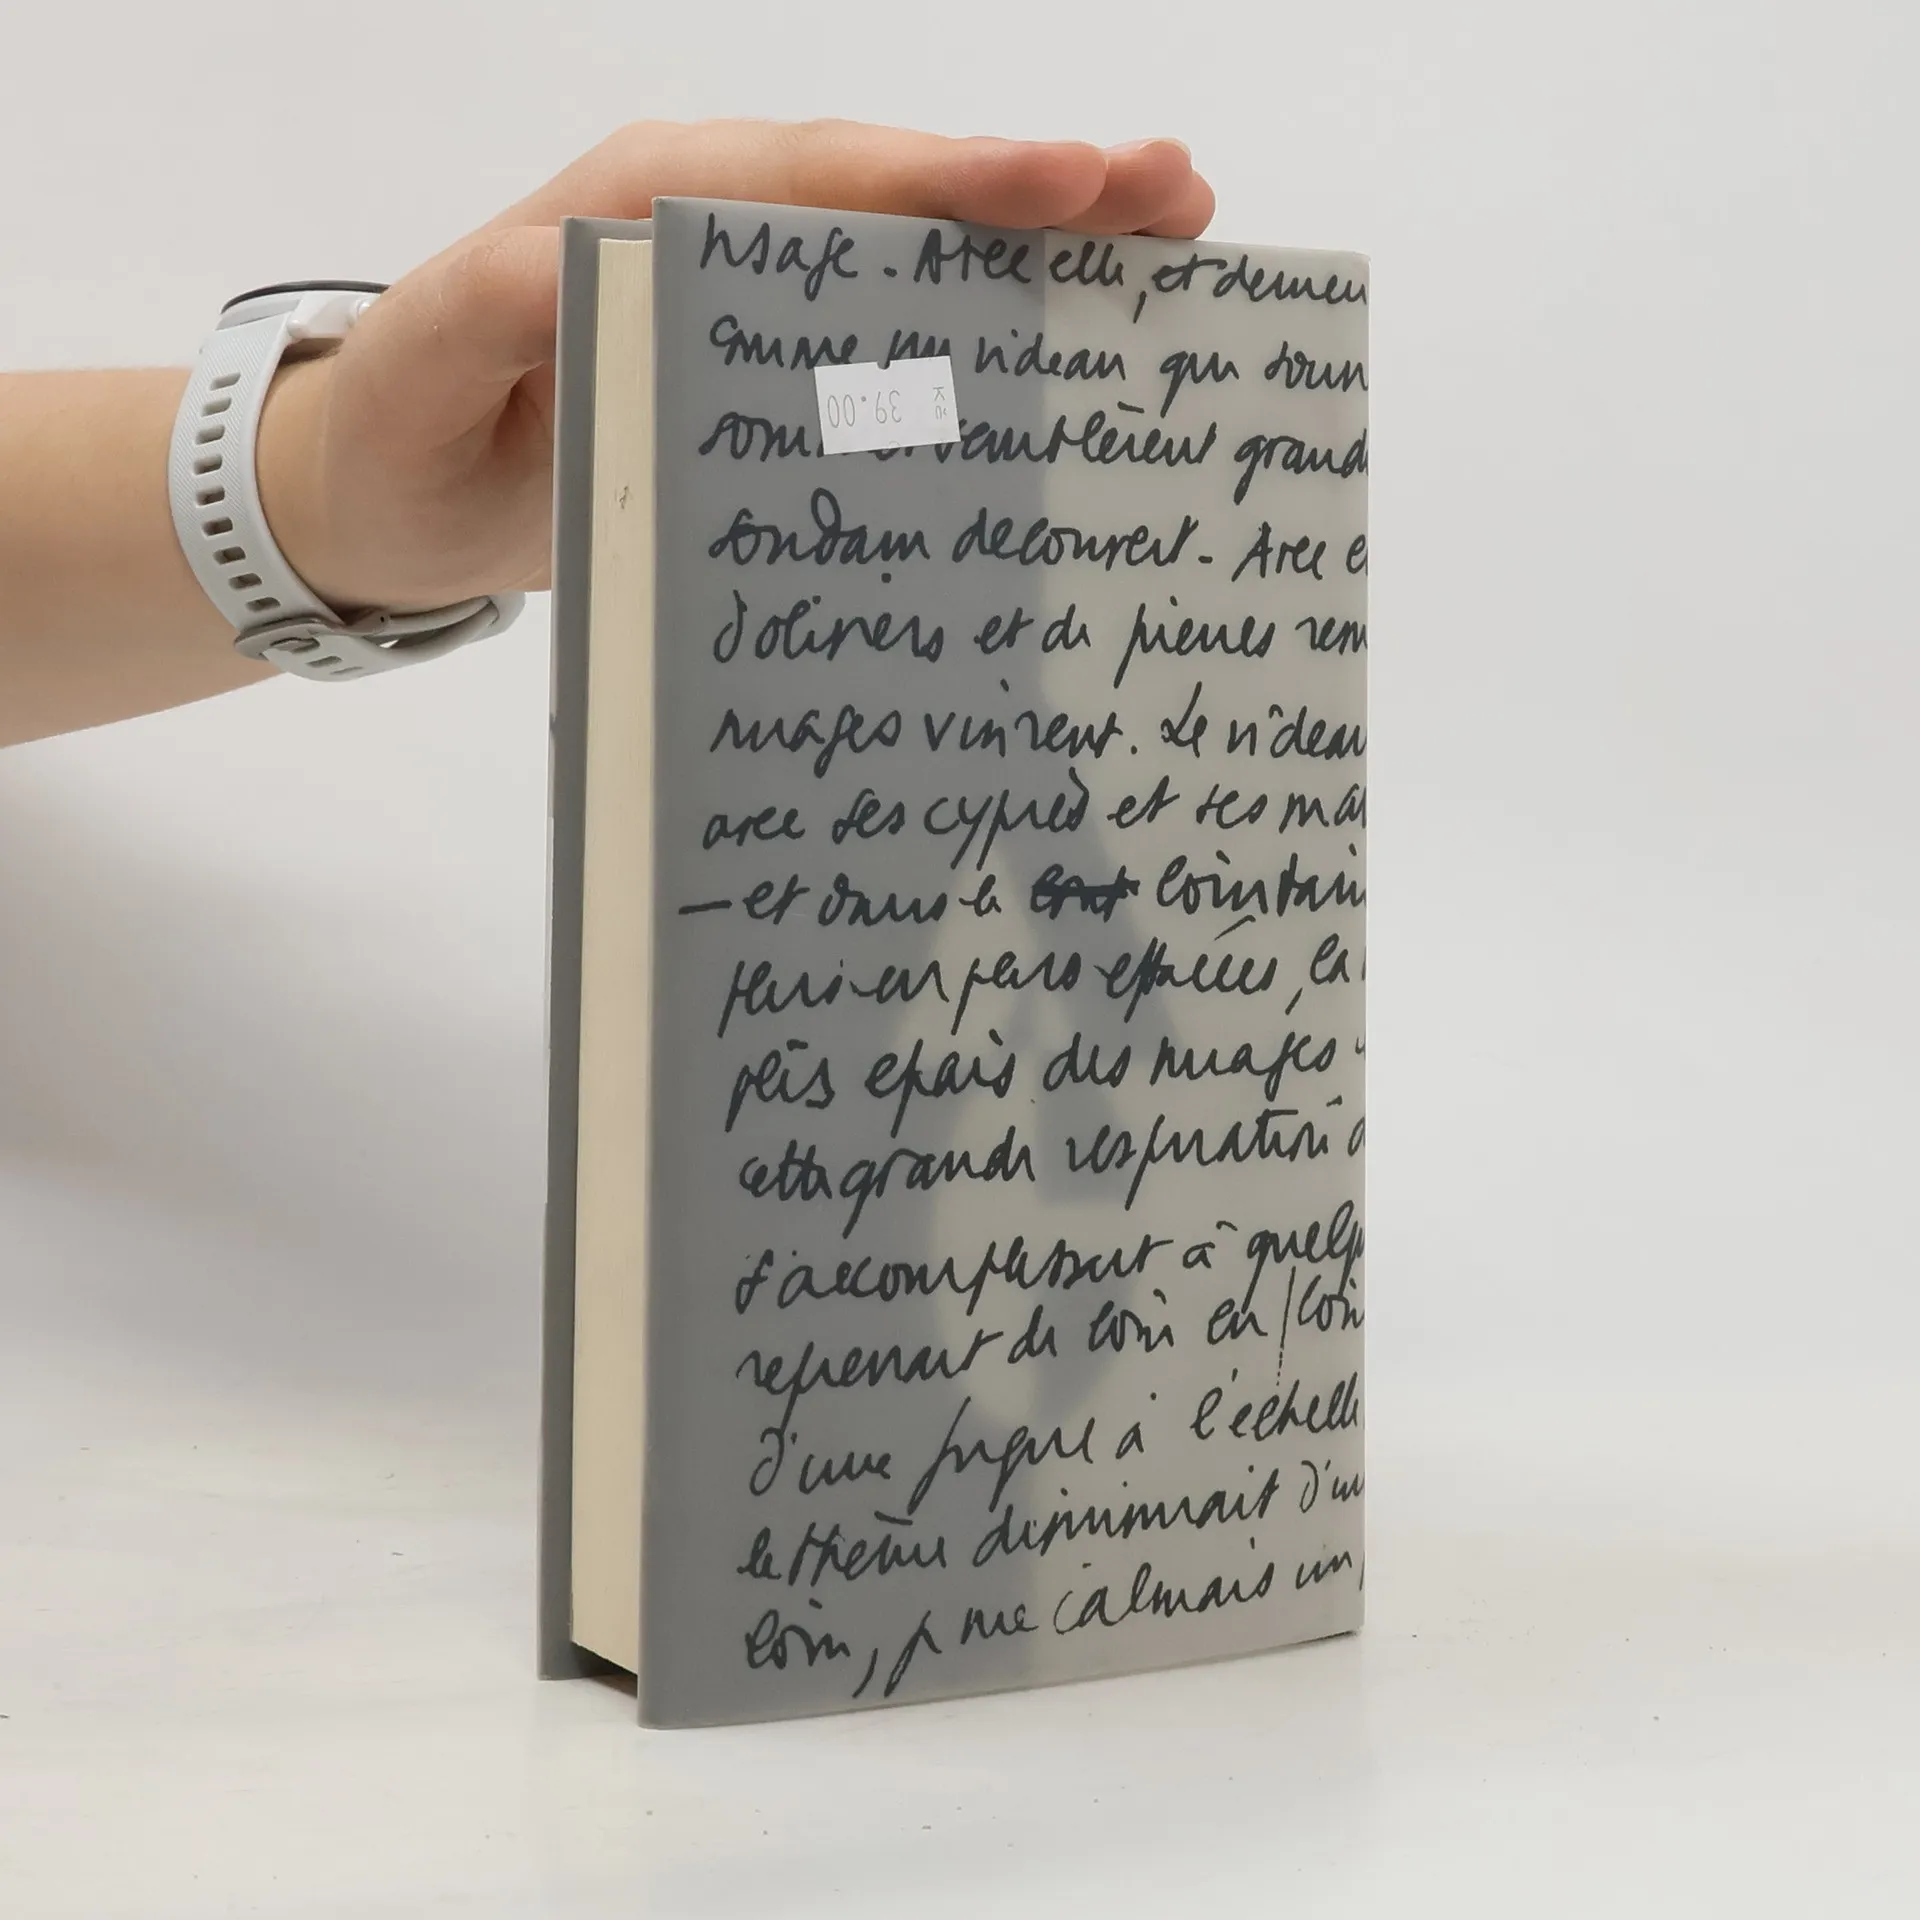 visage. Avec elle, et demeu
comme un rideau qui
39.00 Kč
semblèrent grand
soudain découvert. Avec e
d'oliviers et de pierres
nuages vinrent. Le rideau
avec ses cyprès et ses
- et dans le lointain
effacées, la
plis épais des nuages
cette grande respiration d
s'accomplissait à quelqu
reprenait de loin en loin
d'une fugue à l'échelle
le thème diminuait d'un
loin, je me calmais un